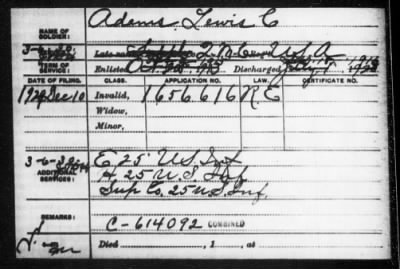 NAME OF SOLDIER: Adams Lewis C
3-6-32
TERM OF SERVICE: Enlisted Oct 1913 Discharged
DATE OF FILING. CLASS. APPLICATION NO. LAW. CERTIFICATE NO.
1929 Dec 10 Invalid, 1656616 R E
Widow,
Minor,
ADDITIONAL SERVICES: E 25 U S Inf
H 25 U.S. Inf
Sup Co. 25 U.S. Inf.
REMARKS: C-614092 COMBINED
Died , 1 , at